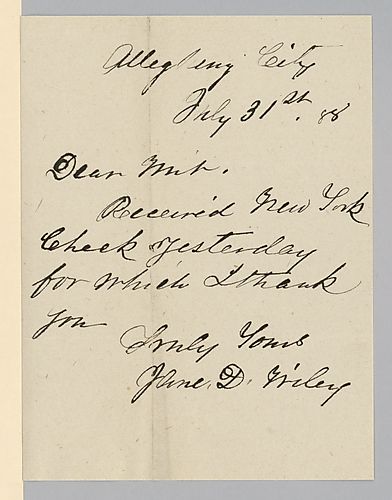 Allegheny City
July 31st. 88
Dear Mr.
Received New York
Check yesterday
for which I thank
you
Truly Yours
Jane. D. Wiley